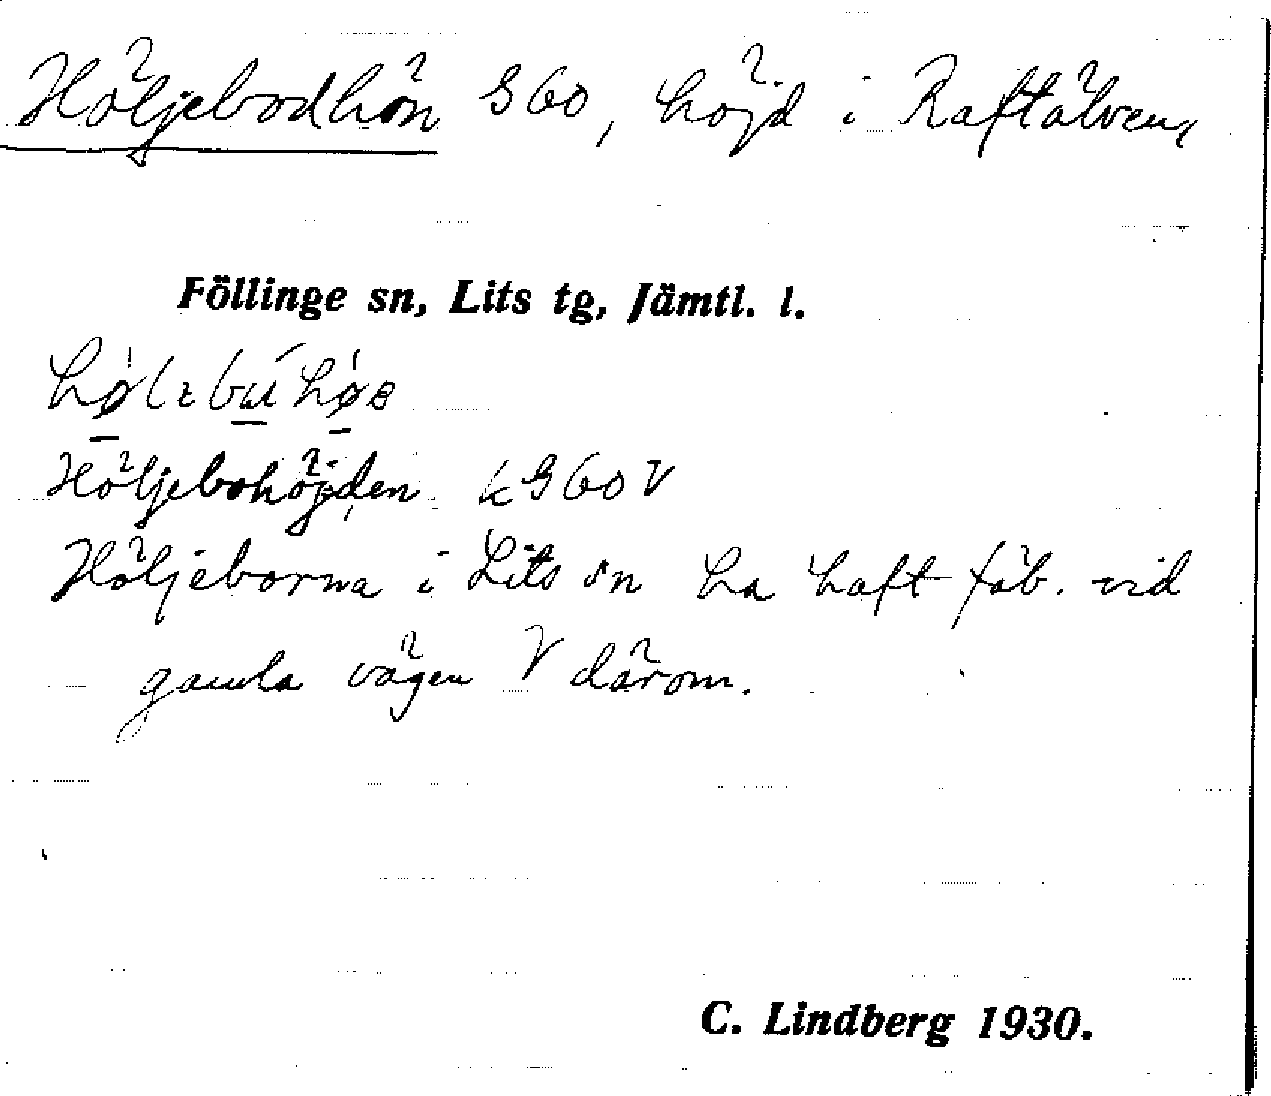 Höljebodhön G60, höjd i Raftälven,
Föllinge sn, Lits tg, Jämtl. l.
Höljebohöjden k G60 V
Höljeborna i Lits sn ha haft fäb. vid
gamla vägen V därom.
C. Lindberg 1930.